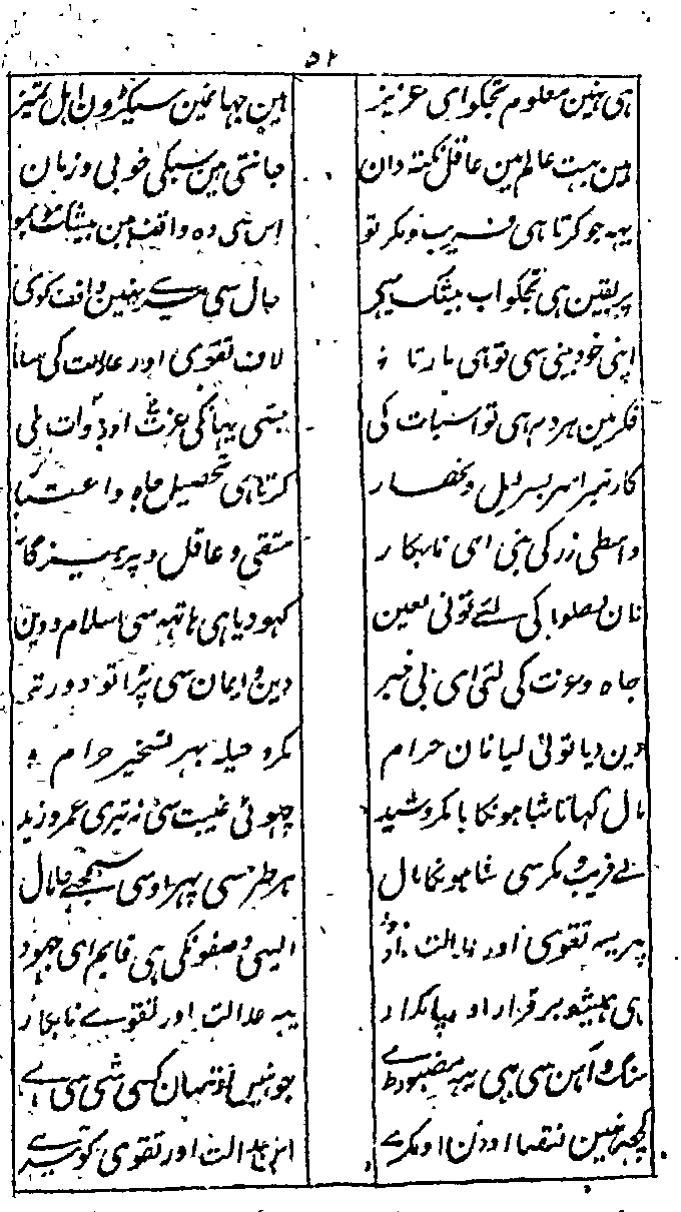 ۵۲
ہی نہین معلوم تجکو ای عزیز ہین جہانمین سیکڑون اہل تمیز
ہین بہت عالم مین عاقل نکتہ دان جانتی ہین سبکی خوبی و زیان
یہہ جو کرتا ہی فریب و مکر تو اس سی وہ واقف ہین بیشک
پر یقین ہی تجکو اب بیشک یہی حال سی میرے نہین واقف کوئی
اپنی خود بینی سی تو ہی مارتا لاف تقوی اور عدالت کی
فکر مین ہر دم ہی تو اسبات کی یہانکی عزت اور ملی
کار تیرا سر بسر لیل و نہار کرتا ہی تحصیل جاہ و اعتبار
واسطی زر کی بنی ای نابکار متقی و عاقل و پرہیزگار
نان و حلوا کی لئے تونی لعین کہو دیا ہی ہاتہہ سی اسلام و دین
جاہ و عزت کی لئی ای بی خبر دین و ایمان سی پڑا تو دور تر
دین دیا تونی لیا نان حرام مکر و حیلہ بہر تسخیر حرام
مال کہاتا شاہونکا با مکر و شید چہوٹی غیبت سی نہ تیری عمرو زید
لے فریب و مکر سی شاہونکا مال ہر طرحسی پہر اوسی سمجھے حلال
پہر یہہ تقوی اور عدالت ایسی وصفونکی ہی قایم ای جہود
ہی ہمیشہ برقرار او پایدار یہہ عدالت اور تقوے نابکار
سنگ و آہن سی بہی یہہ مضبوط ہے جو نہین کسی شی سی ہے
کچہہ نہین نقصان اور تقوی کو تیرے